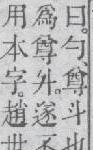 曰。勺、尊斗也
爲尊外。遂不
用本字。趙世